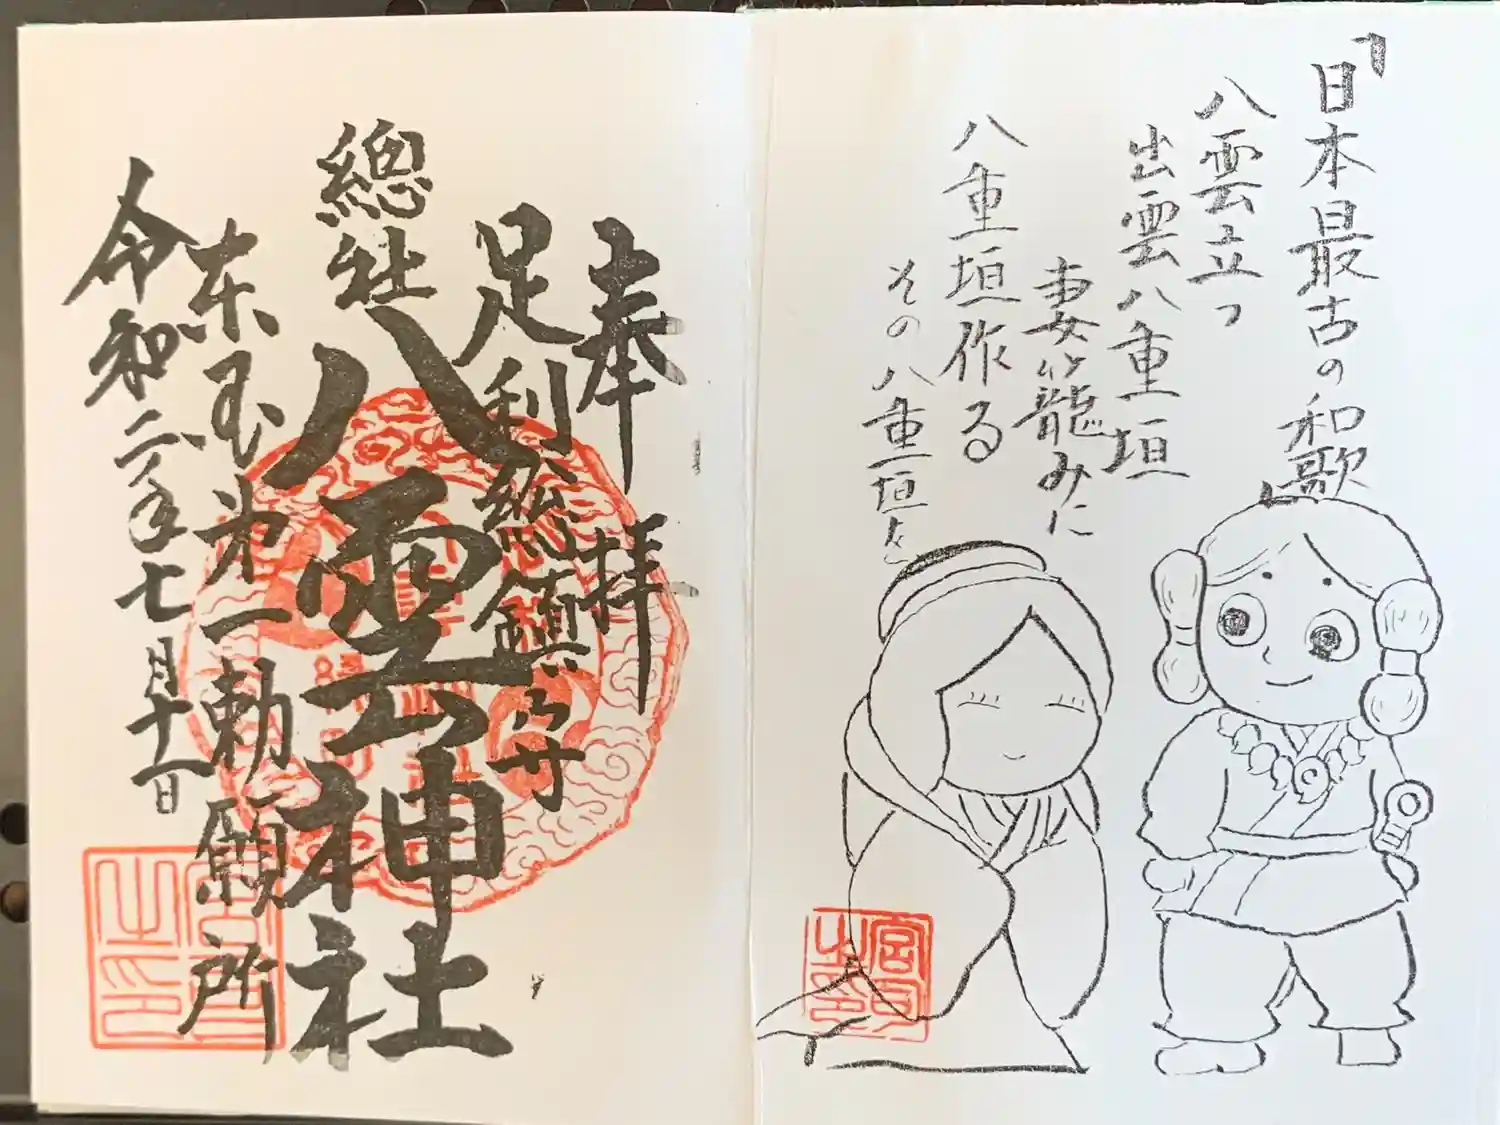 「日本最古の和歌
八雲立つ
出雲八重垣
妻籠みに
八重垣作る
その八重垣を
宮司
之印
奉拝
足利総鎮守
總社
八雲神社
東国第一勅願所
令和二年七月十一日